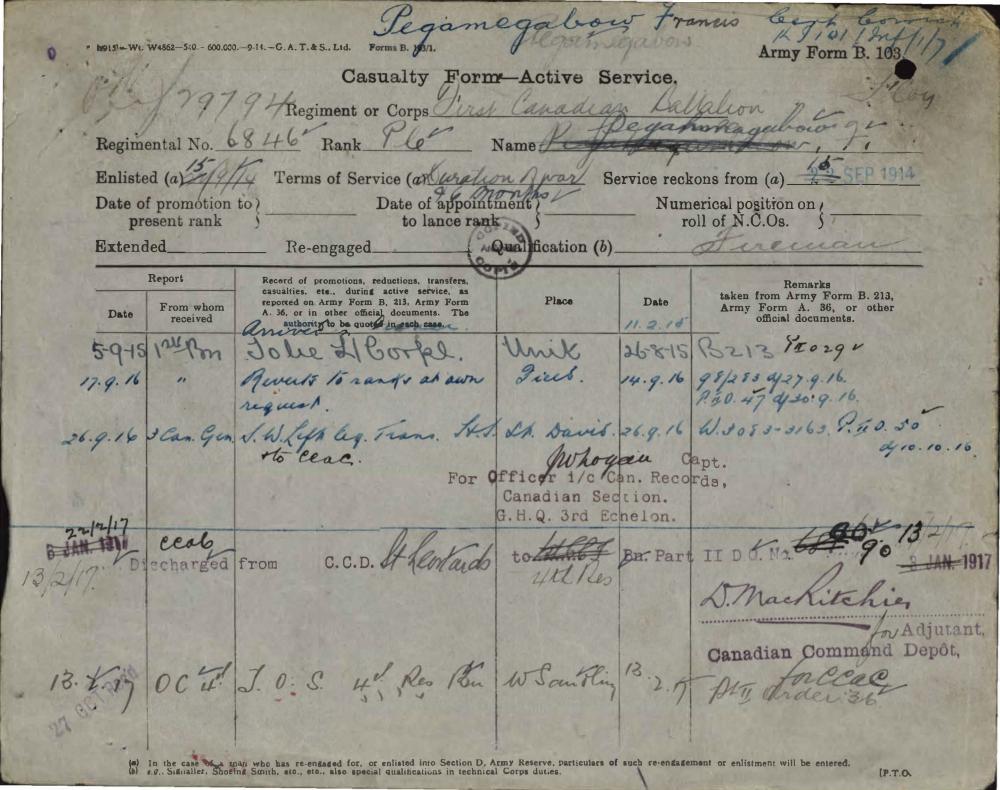 Pegamegabow Francis
(6915)—Wt. W4862—540.- 600,000.—9-14.—G. A. T. & S., Ltd. Forms B. 103/1.
Army Form B. 103.
Casualty Form—Active Service.
29794 Regiment or Corps First Canadian Battalion
Regimental No. 6846 Rank Pte Name Pegahmagabow, F.
Enlisted (a) 15/9/14 Terms of Service (a) Duration of war Service reckons from (a) 15 22 SEP 1914
& 6 months
Date of promotion to present rank } Date of appointment to lance rank } Numerical position on roll of N.C.Os. }
Extended Re-engaged Qualification (b) Fireman
COPIED
Report
Date
From whom received
Record of promotions, reductions, transfers, casualties, etc., during active service, as reported on Army Form B. 213, Army Form A. 36, or in other official documents. The authority to be quoted in each case.
Place
Date
Remarks taken from Army Form B. 213, Army Form A. 36, or other official documents.
Arrived 11.2.15
5-9-15 1st Bn To be L/Corpl. Unit 26-8-15 B213
17.9.16 " Reverts to ranks at own request. Field. 14.9.16 98/283 d/27.9.16.
P.II O. 47 d/30.9.16.
26.9.16 3 Can. Gen. S.W. Left leg. Trans. H.S. St. David. 26.9.16 W.3083-3163. P.II O. 50 d/10.10.16.
to CCAC.
Capt.
For Officer i/c Can. Records,
Canadian Section.
G.H.Q. 3rd Echelon.
22/2/17
8 JAN. 1917 ccac 90 13/2/17
13/2/17. Discharged from C.C.D. St Leonards to Bn. Part II D.O. No. 90 8 JAN. 1917
4th Res
D. MacRitchie
for Adjutant,
Canadian Command Depôt,
for CCAC
13.2.17 OC 4th T. O. S. 4th Res Bn W Sandling 13.2.17 Pt II order 36
27 OCT
(a) In the case of a man who has re-engaged for, or enlisted into Section D, Army Reserve, particulars of such re-engagement or enlistment will be entered.
(b) e.g., Signaller, Shoeing Smith, etc., etc., also special qualifications in technical Corps duties.
[P.T.O.